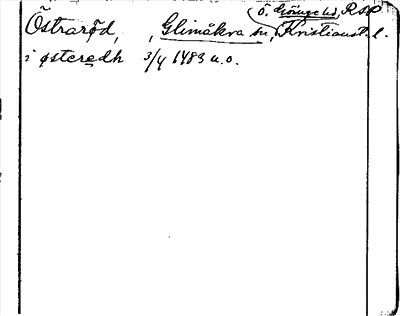 Ö. Göinge hd, RAP
Östraröd, , Glimåkra sn, Kristianst. l.
i østeredh 3/4 1483 u.o.